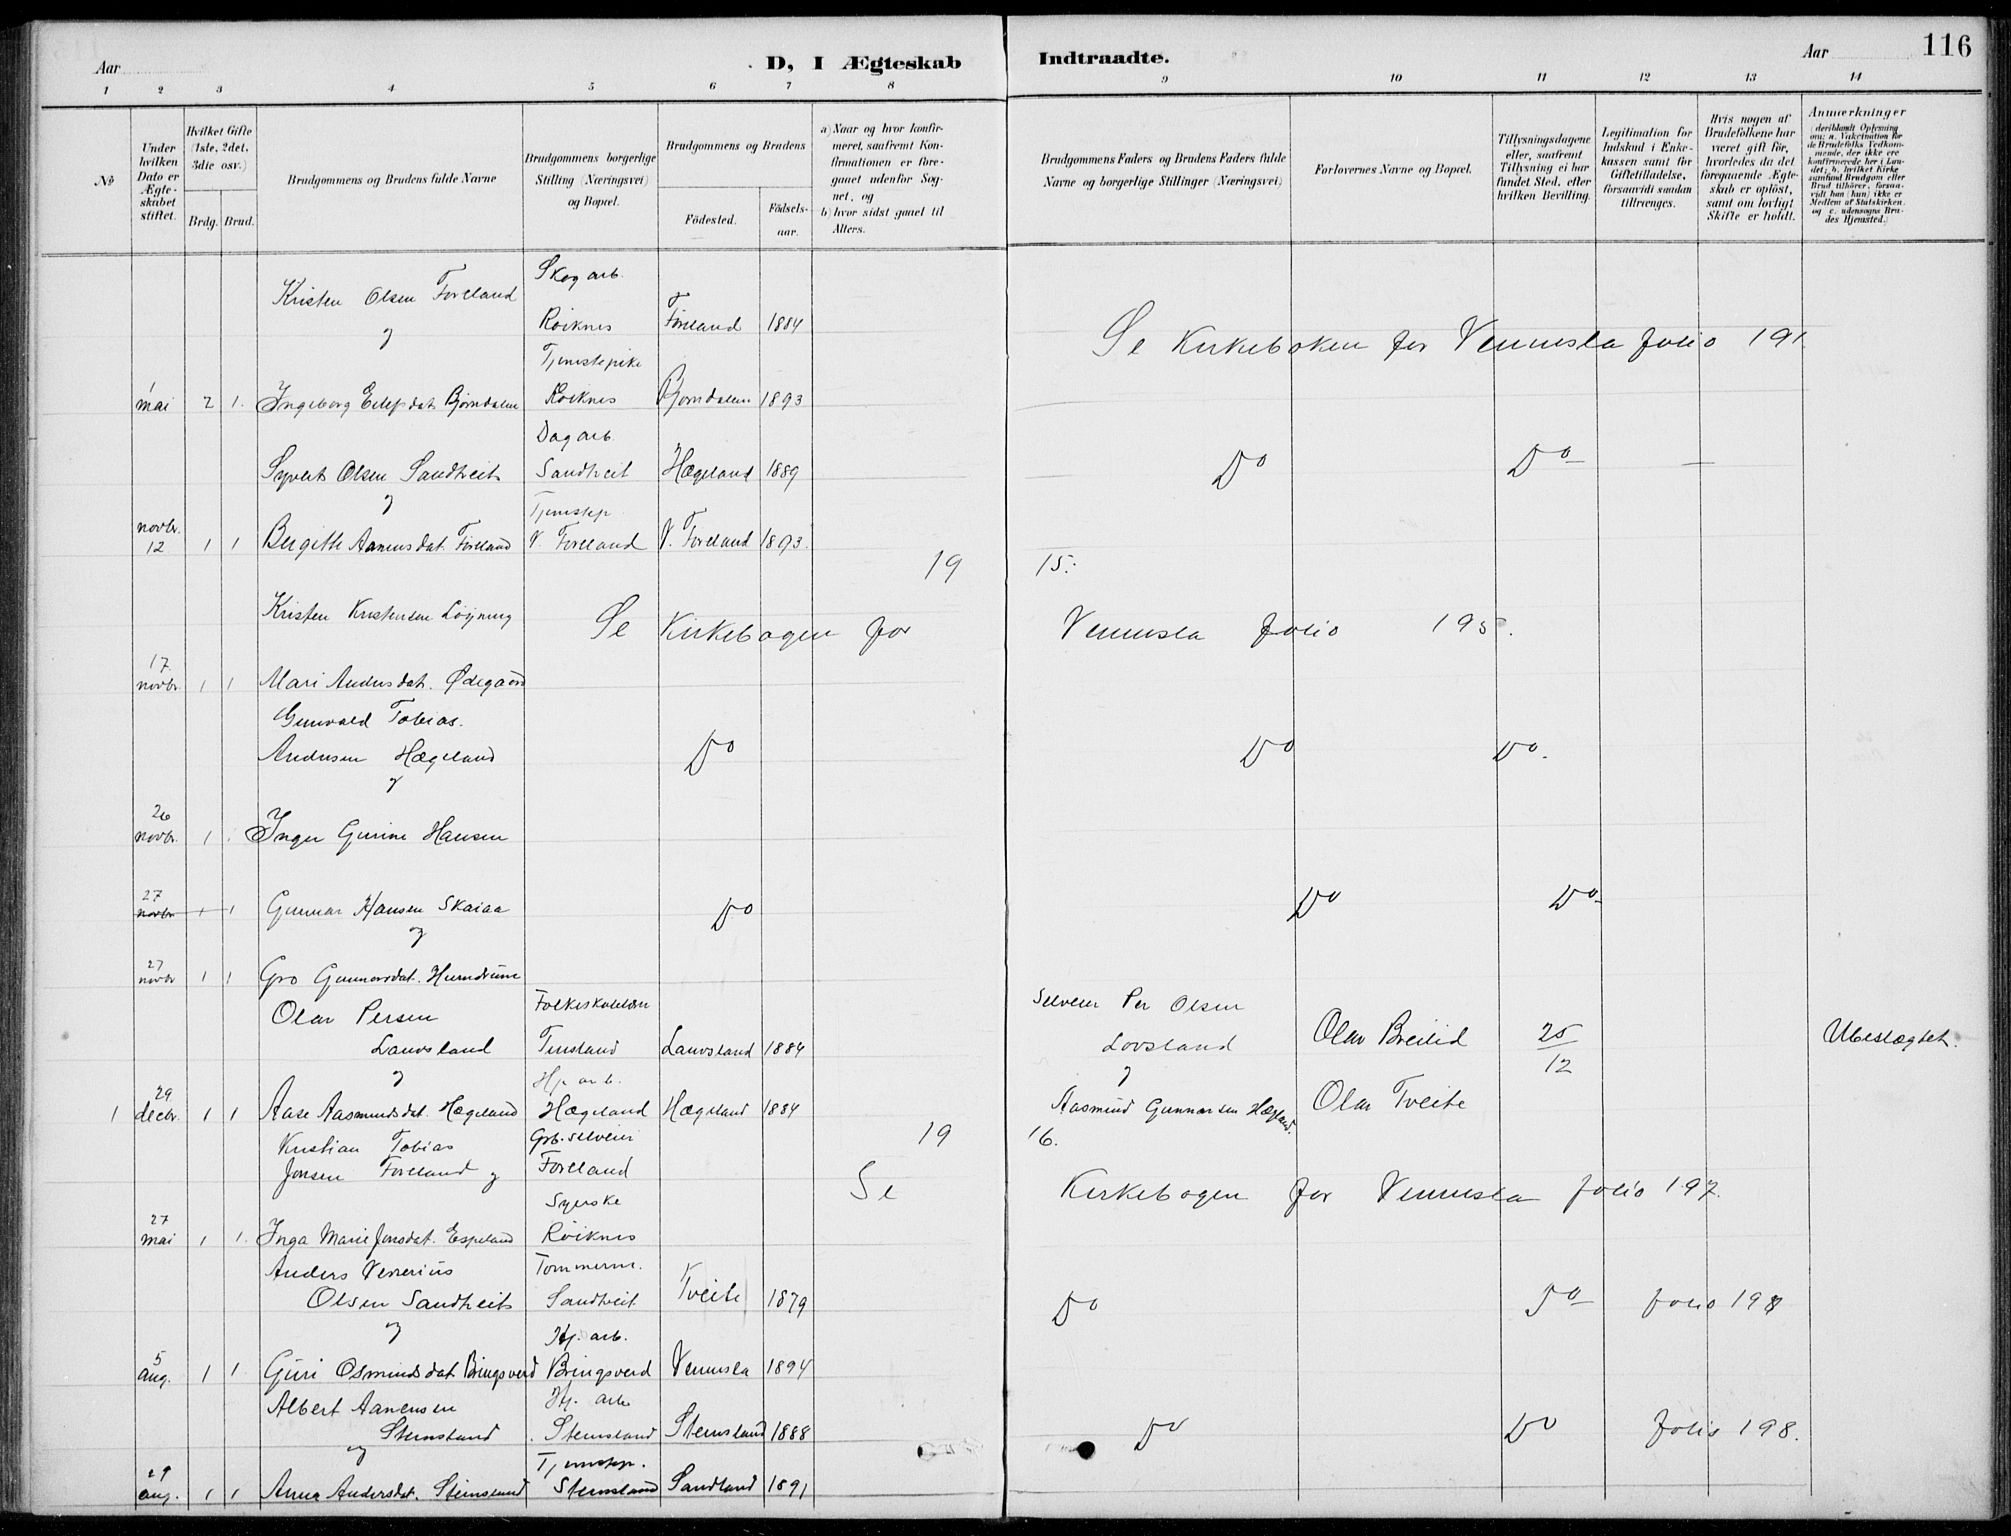 116
Aar
D, I Ægteskab Indtraadte.
Aar
1 2 3 4 5 6 7 8 9 10 11 12 13 14
No
Under hvilken Dato er Ægteskabet stiftet.
Hvilket Gifte (1ste, 2det, 3die osv.)
Brdg. Brud.
Brudgommens og Brudens fulde Navne
Brudgommens borgerlige Stilling (Næringsvei) og Bopæl.
Brudgommens og Brudens
Fødested.
Fødselsaar.
a) Naar og hvor konfirmeret, saafremt Konfirmationen er foregaaet udenfor Sognet, og
b) hvor sidst gaaet til Alters.
Brudgommens Faders og Brudens Faders fulde Navne og borgerlige Stillinger (Næringsvei)
Forlovernes Navne og Bopæl.
Tillysningsdagene eller, saafremt Tillysning ei har fundet Sted, efter hvilken Bevilling.
Legitimation for Indskud i Enkekassen samt for Giftetilladelse, forsaavidt saadan tiltrænges.
Hvis nogen af Brudefolkene har været gift før, hvorledes da det foregaaende Ægteskab er opløst, samt om lovligt Skifte er holdt.
Anmerkninger (deriblandt Oplysning om: a. Vakcination for de Brudefolks Vedkommende, der ikke ere konfirmerede her i Landet; b. hvilket Kirkesamfund Brudgom eller Brud tilhører, forsaavidt han (hun) ikke er Medlem af Statskirken, og c. udensogns Brudes Hjemsted.)
Skog arb.
Kristen Olsen Foreland Røiknes Føreland 1884
Se Kirkeboken for Vennesla folio 191.
Tjenestepike
1 mai 2 1. Ingeborg Eilefsdat. Bjørndalen Røiknes Bjørndalen 1893
Dag arb.
Syvert Olsen Sandtveit Sandtveit Hægeland 1889 Do Do —
Tjenestep.
novbr. 12 1 1 Bergitte Aanensdat. Føreland V. Foreland V. Foreland 1893.
19 15.
Kristen Kristensen Løyning Se Kirkebogen for Vennesla folio 195.
17 novbr. 1 1 Mari Andersdat. Ødegaard
Gunvald Tobias.
Andersen Hægeland Do Do Do.
26 novbr. 1 Inger Gurine Hansen
27 novbr. 1 1 Gunnar Hansen Skaiaa Do Do Do
27 novbr 1 1 Gro Gunnarsdat.
Olav Persen Folkeskolelærer Selveier Per Olsen
Lauvsland Lauvsland 1884 Lovsland Olav Breilid 25/12 Ubeslægtet.
Hj. arb.
1 29 decbr. 1 1 Aase Aasmundsdat. Hægeland Hægeland Hægeland 1884 Aasmund Gunnarsen Hægeland. Olav Tveite
19 16.
Kristian Tobias Grb. selveier
Jonsen Foreland Foreland
Se Kirkebogen for Vennesla folio 197.
Syerske
27 mai 1 1. Inga Marie Jonsdat. Espeland Røiknes
Anders Tømmerm.
Olsen Sandtveit Sandtveit Tveite 1879 Do Do folio 198
Hj. arb.
5 aug. 1 1 Guri Osmundsdat Bringsverd Bringsverd Vennesla 1894
Albert Aanensen Hj. arb
Stemsland Stemsland Stemsland 1888 Do Do folio 198.
Tjenestep.
29 aug. 1 1 Anna Andersdat. Steinsland Stemsland Sandland 1891